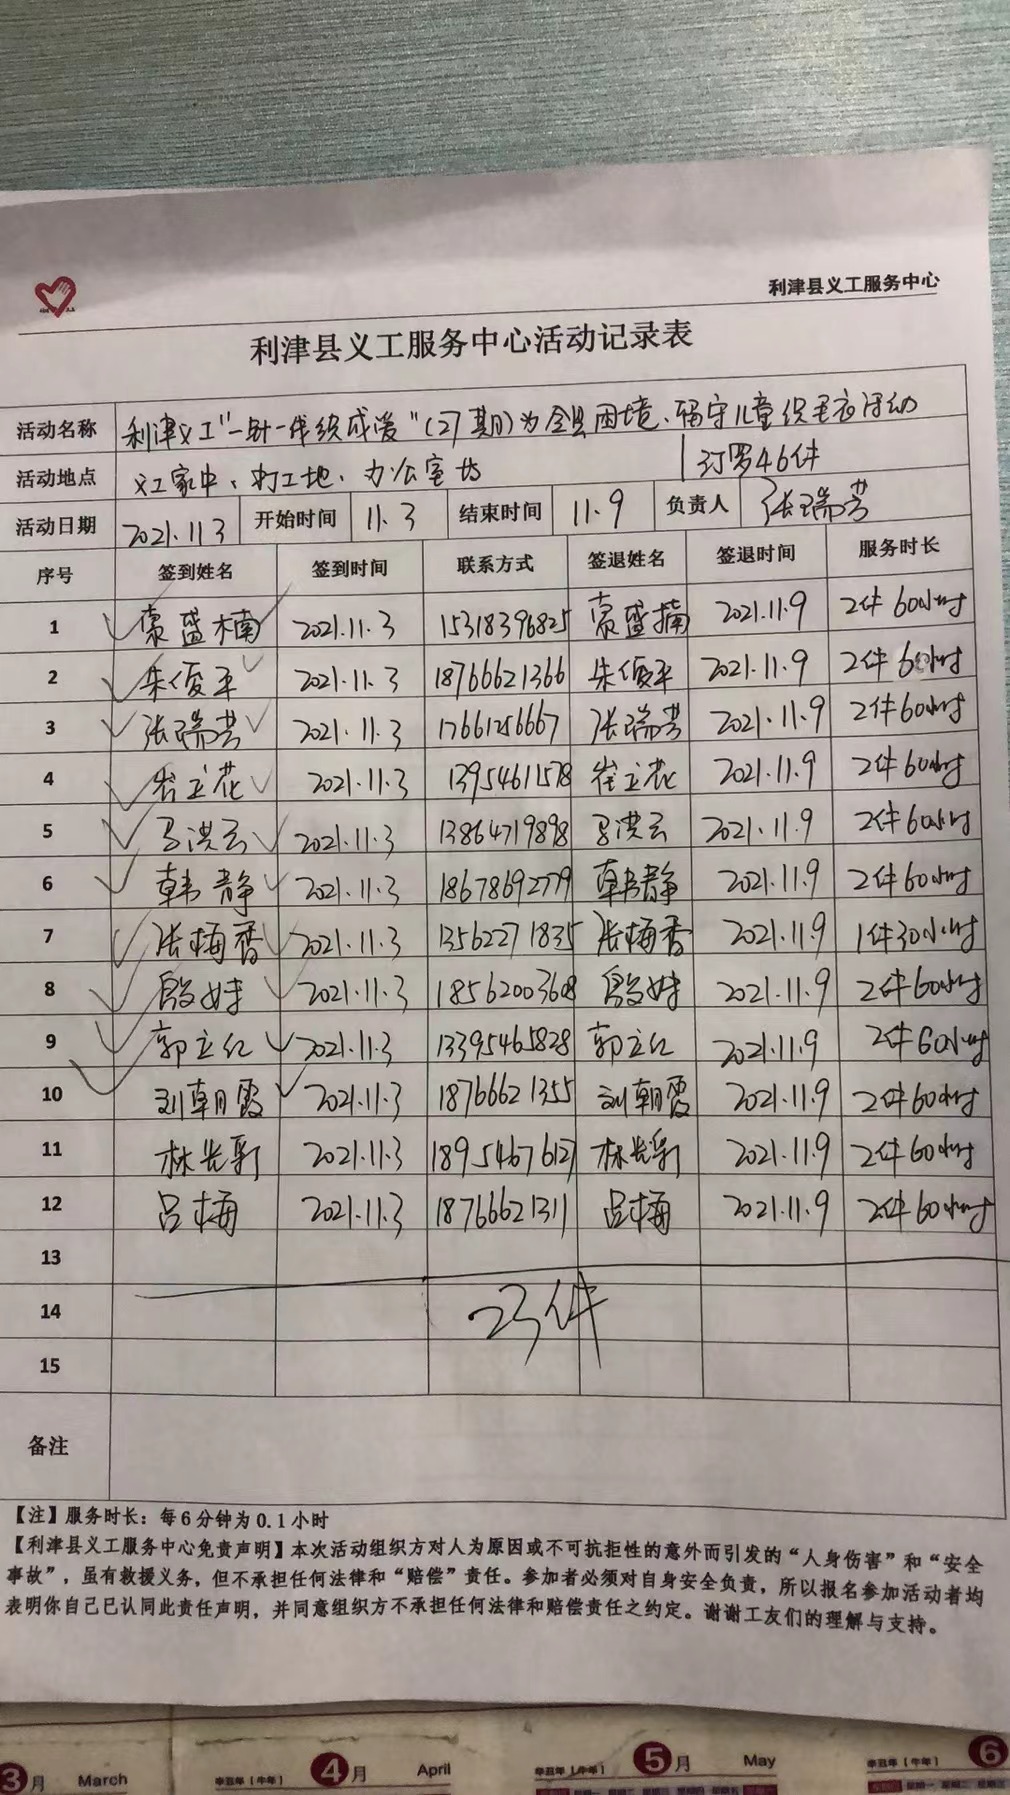 利津县义工服务中心
利津县义工服务中心活动记录表
活动名称 利津义工"一针一线织成爱"(27期)为全县困境、留守儿童织毛衣活动
活动地点 义工家中、打工地、办公室 46件
活动日期 2021.11.3 开始时间 11.3 结束时间 11.9 负责人 张瑞芳
序号 签到姓名 签到时间 联系方式 签退姓名 签退时间 服务时长
1 盛楠 2021.11.3 15318396825 盛楠 2021.11.9 2件60小时
2 朱俊平 2021.11.3 18766621366 朱俊平 2021.11.9 2件60小时
3 张瑞芳 2021.11.3 17661256667 张瑞芳 2021.11.9 2件60小时
4 崔立花 2021.11.3 13954611578 崔立花 2021.11.9 2件60小时
5 马洪云 2021.11.3 13864719898 马洪云 2021.11.9 2件60小时
6 韩静 2021.11.3 18678692779 韩静 2021.11.9 2件60小时
7 张梅香 2021.11.3 13562271835 张梅香 2021.11.9 1件30小时
8 2021.11.3 18562003608 2021.11.9 2件60小时
9 郭立红 2021.11.3 13395465828 郭立红 2021.11.9 2件60小时
10 刘朝霞 2021.11.3 18766621355 刘朝霞 2021.11.9 2件60小时
11 林光新 2021.11.3 18954676127 林光新 2021.11.9 2件60小时
12 吕梅 2021.11.3 18766621311 吕梅 2021.11.9 2件60小时
13
14 23件
15
备注
【注】服务时长：每6分钟为0.1小时
【利津县义工服务中心免责声明】本次活动组织方对人为原因或不可抗拒性的意外而引发的“人身伤害”和“安全
事故”，虽有救援义务，但不承担任何法律和“赔偿”责任。参加者必须对自身安全负责，所以报名参加活动者均
表明你自己已认同此责任声明，并同意组织方不承担任何法律和赔偿责任之约定。谢谢工友们的理解与支持。
3月 March 辛丑年（牛年） 4月 April 辛丑年（牛年） 5月 May 辛丑年（牛年） 6